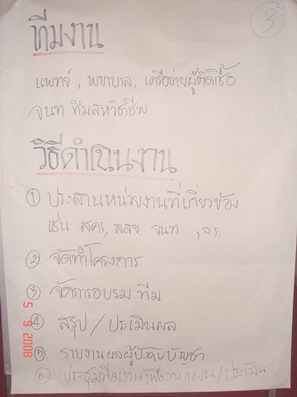 3
ทีมงาน
แพทย์, พยาบาล, เครือข่ายผู้ติดเชื้อ
จนท. ทีมสหวิชาชีพ
วิธีดำเนินงาน
① ประสานหน่วยงานที่เกี่ยวข้อง
เช่น สคร, สสจ. จนท
② จัดทำโครงการ
③ จัดการอบรม ทีม
④ สรุป / ประเมินผล
⑤ รายงานผลผู้บังคับบัญชา
⑥ ประชุมทีมงานเพื่อวางแผน/ประเมิน
5 9 2008